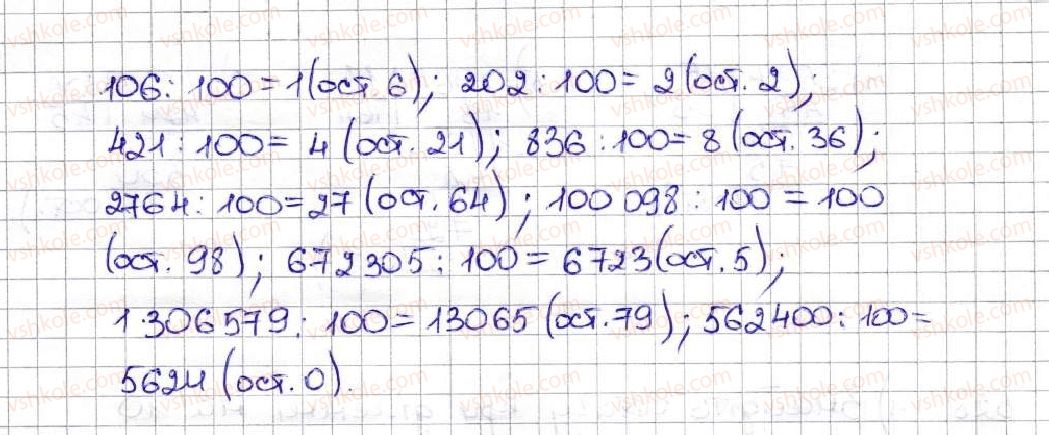 106 : 100 = 1 (ост. 6); 202 : 100 = 2 (ост. 2);
421 : 100 = 4 (ост. 21); 836 : 100 = 8 (ост. 36);
2764 : 100 = 27 (ост. 64); 100 098 : 100 = 100
(ост. 98); 672305 : 100 = 6723 (ост. 5);
1 306 579 : 100 = 13065 (ост. 79); 562400 : 100 =
5624 (ост. 0).
vshkole.com